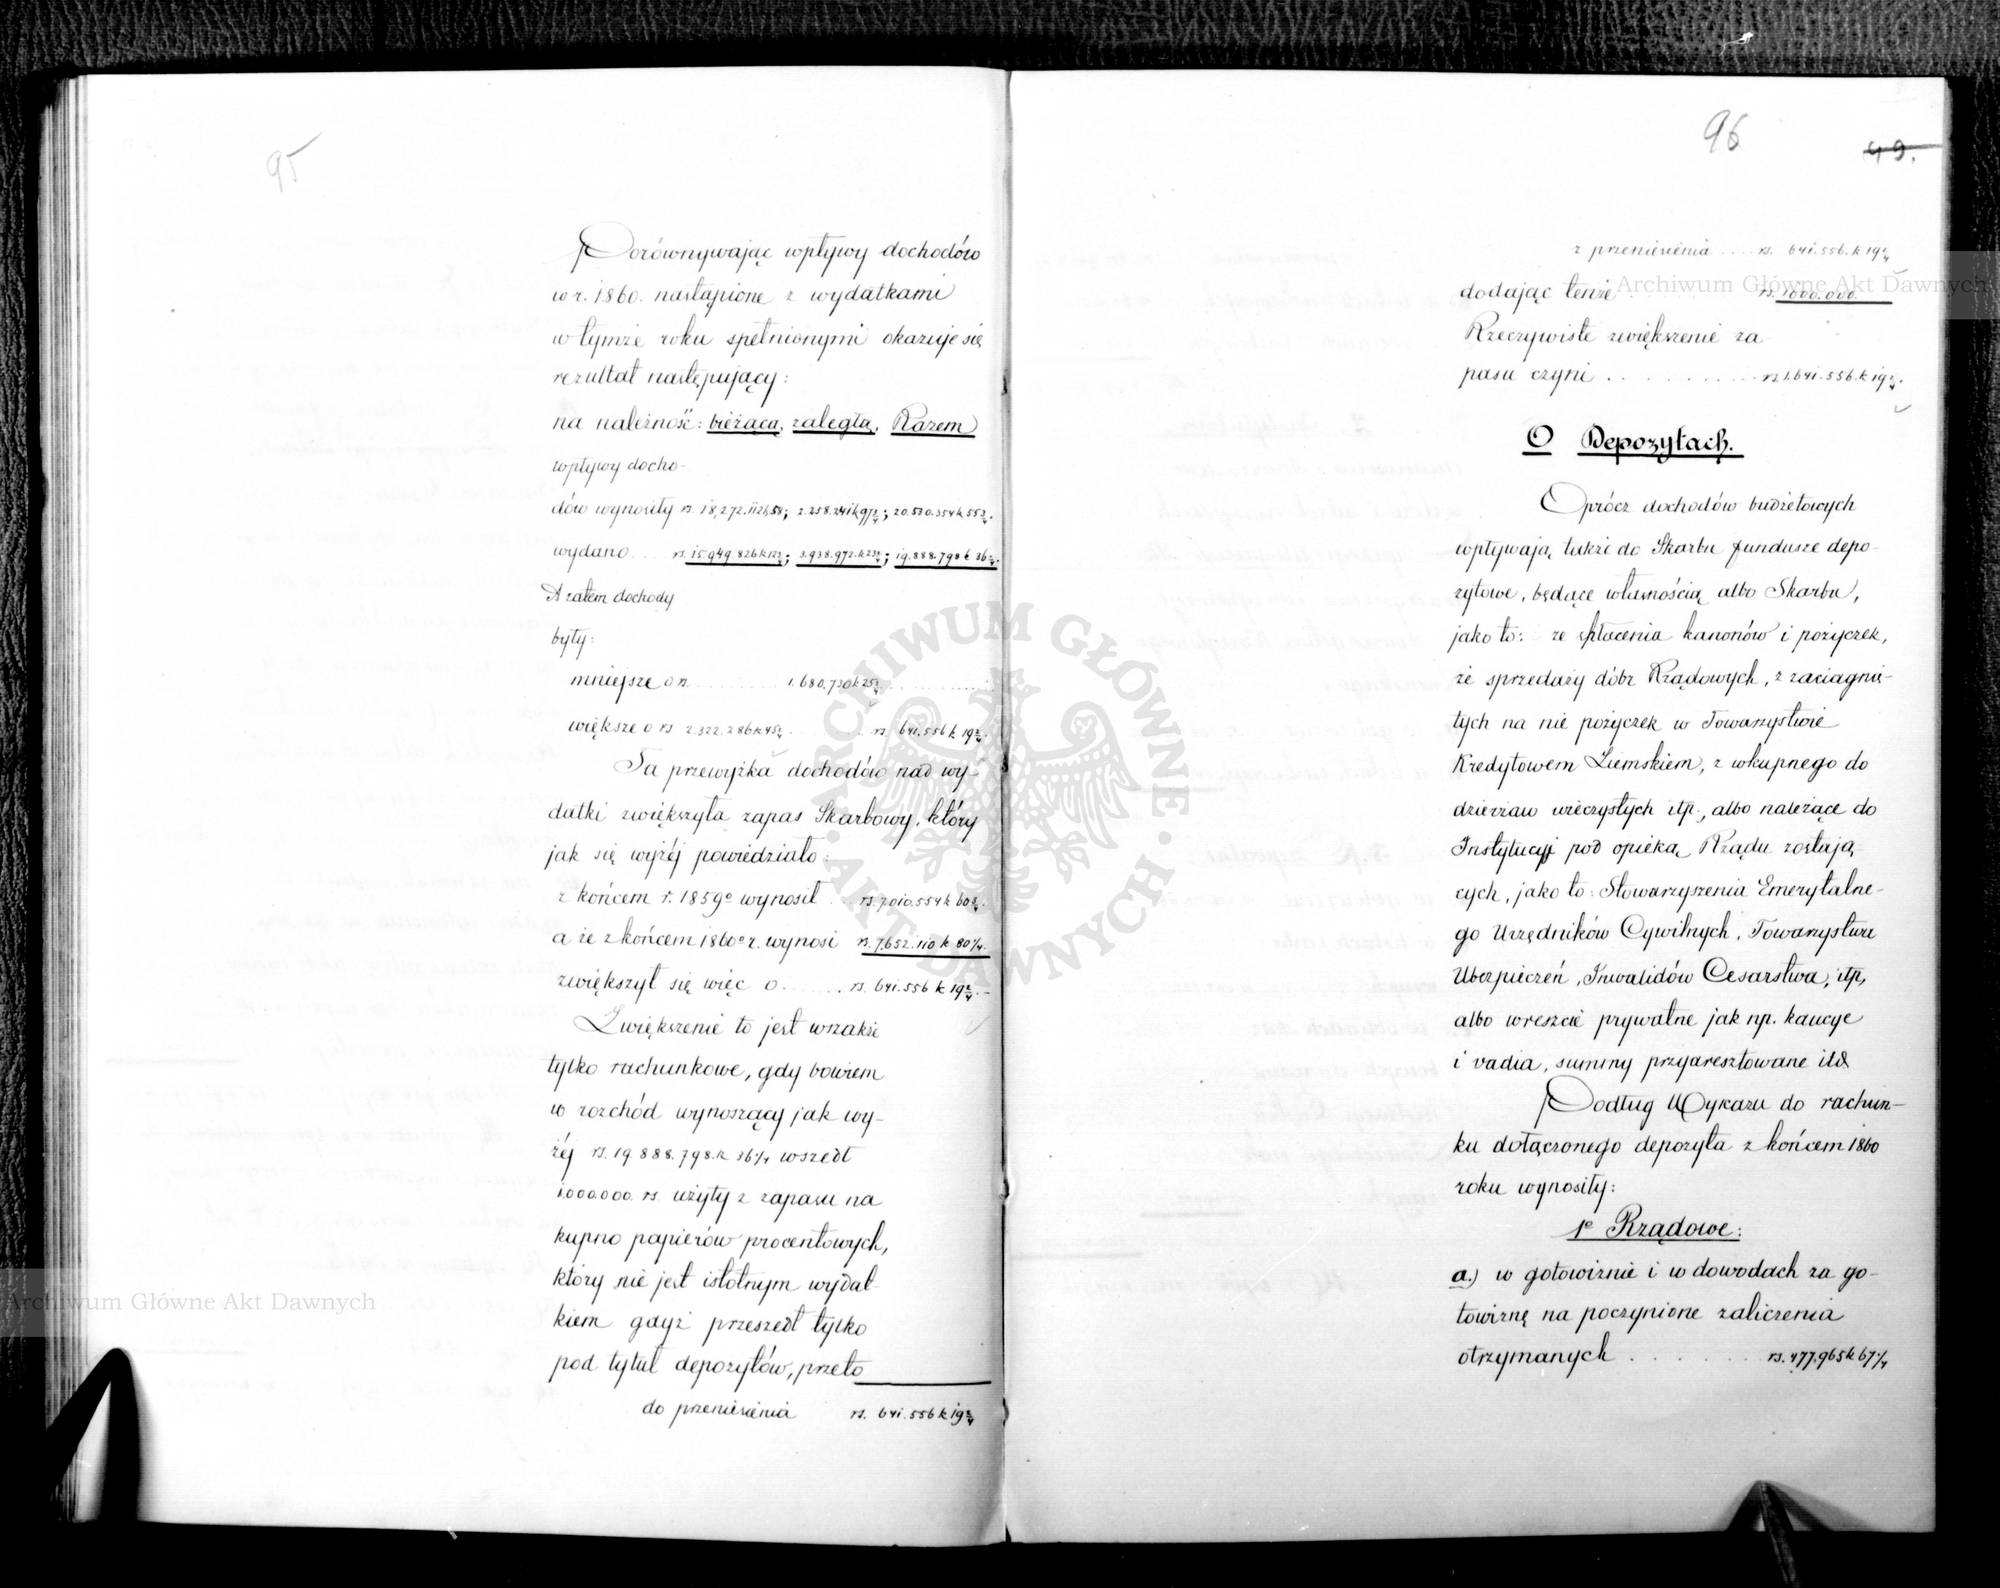 95
Porównywając wpływy dochodów
w r. 1860. nastąpione z wydatkami
w tymże roku spełnionymi okazuje się
rezultat następujący:
na należność: bieżącą, zaległą, Razem
wpływy docho-
dów wynosiły rs. 18,272.112 k 58; 2.258.241 k 97 3/4; 20.530.354 k 55 3/4.
wydano... rs. 15.949.826 k 12 3/4; 3.938.972 k 23 2/4; 19.888.798 k 36 1/4.
A zatem dochody
były:
mniejsze o rs. 1.680.730 k 25 3/4
większe o rs 2.322.286 k 45 1/4 rs 641.556 k 19 2/4.
Ta przewyżka dochodów nad wy-
datki zwiększyła zapas Skarbowy, który
jak się wyżej powiedziało:
z końcem r. 1859go wynosił .. rs. 7.010.554 k 60 3/4.
a że z końcem 1860 r. wynosi rs. 7.652.110 k 80 1/4.
zwiększył się więc o ...... rs. 641.556 k 19 2/4.-
Zwiększenie to jest wszakże
tylko rachunkowe, gdy bowiem
w rozchód wynoszący jak wy-
żej rs. 19.888.798. k 36 1/4 wszedł
1.000.000. rs. użyty z zapasu na
kupno papierów procentowych,
który nie jest istotnym wydat-
kiem gdyż przeszedł tylko
pod tytuł depozytów, przeto
do przeniesienia rs. 641.556 k 19 2/4
96
49.
z przeniesienia .... rs. 641.556. k 19 2/4
dodając tenże rs. 1000.000.
Rzeczywiste zwiększenie za-
pasu czyni .......... rs 1.641.556. k 19 2/4.
O Depozytach.
Oprócz dochodów budżetowych
wpływają także do Skarbu fundusze depo-
zytowe, będące własnością albo Skarbu,
jako to: ze spłacenia kanonów i pożyczek,
ze sprzedaży dóbr Rządowych, z zaciągnię-
tych na nie pożyczek w Towarzystwie
Kredytowem Ziemskiem, z wkupnego do
dzierżaw wieczystych itp., albo należące do
Instytucyj pod opieką Rządu zostają-
cych, jako to: Stowarzyszenia Emerytalne-
go Urzędników Cywilnych, Towarzystwa
Ubezpieczeń, Inwalidów Cesarstwa, itp,
albo wreszcie prywatne jak np. kaucye
i vadia, summy przyaresztowane itd
Podług Wykazu do rachun-
ku dołączonego depozyta z końcem 1860
roku wynosiły:
1e Rządowe:
a.) w gotowiźnie i w dowodach za go-
towiznę na poczynione zaliczenia
otrzymanych ....... rs. 477.965 k 67 1/4
Archiwum Główne Akt Dawnych
Archiwum Główne Akt Dawnych
ARCHIWUM GŁÓWNE · AKT DAWNYCH ·